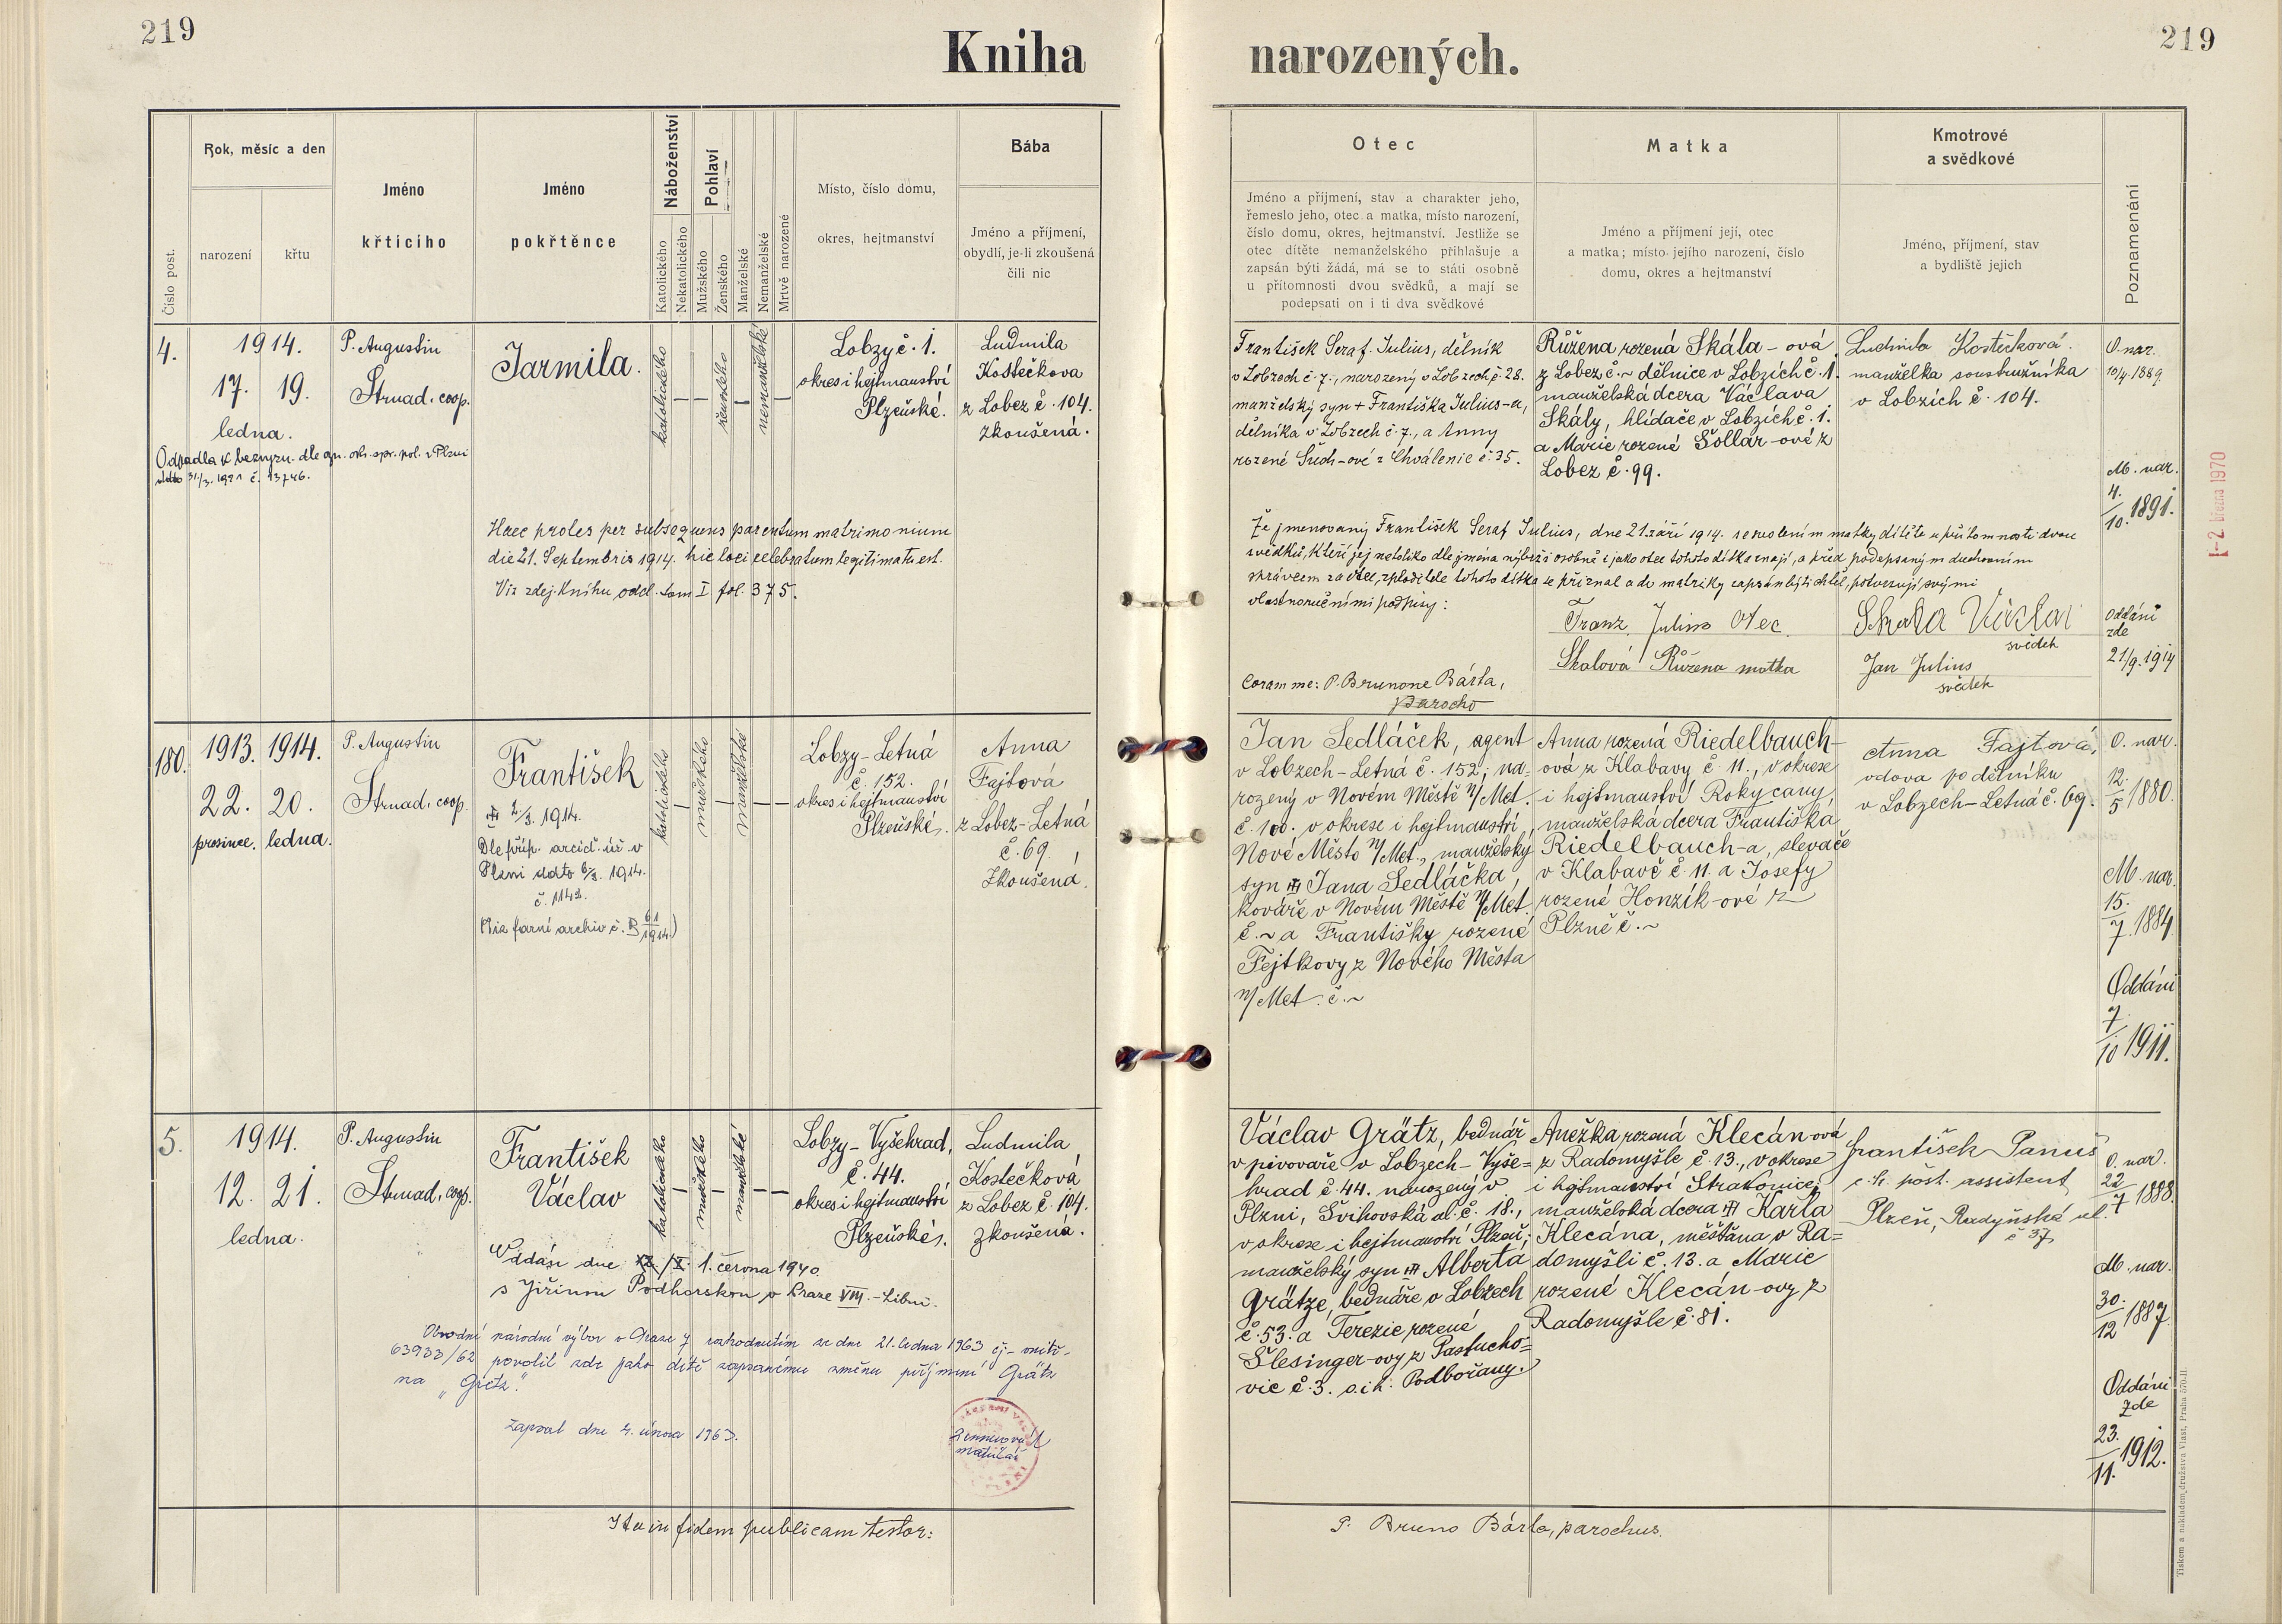 219
Kniha
narozených.
219
Číslo post.
Rok, měsíc a den
narození
křtu
Jméno
křticího
Jméno
pokřtěnce
Náboženství
Katolického
Nekatolického
Pohlaví
Mužského
Ženského
Manželské
Nemanželské
Mrtvě narozené
Místo, číslo domu,
okres, hejtmanství
Bába
Jméno a příjmení,
obydlí, je-li zkoušená
čili nic
Otec
Jméno a příjmení, stav a charakter jeho,
řemeslo jeho, otec a matka, místo narození,
číslo domu, okres, hejtmanství. Jestliže se
otec dítěte nemanželského přihlašuje a
zapsán býti žádá, má se to státi osobně
u přítomnosti dvou svědků, a mají se
podepsati on i ti dva svědkové
Matka
Jméno a příjmení její, otec
a matka; místo jejího narození, číslo
domu, okres a hejtmanství
Kmotrové
a svědkové
Jméno, příjmení, stav
a bydliště jejich
Poznamenání
4.
1914.
17. 19.
ledna.
Odpadla k bezvyzn. dle ozn. okr. spr. pol. v Plzni
31/3. 1921 č. 13746.
P. Augustin
Strnad, coop.
Jarmila.
katolického
ženského
nemanželské
Lobzy č. 1.
okres i hejtmanství
Plzeňské.
Ludmila
Kostečkova
z Lobez č. 104.
zkoušená.
Haec proles per subsequens parentum matrimonium
die 21. Septembris 1914. hic loci celebratum legitimata est.
Viz zdej. knihu odd. tom I fol. 375.
František Seraf. Julius, dělník
v Lobzech č. 7., narozený v Lobzech č. 28.
manželský syn + Františka Julius-a,
dělníka v Lobzech č. 7., a Anny
rozené Such-ové z Chválenic č. 35.
Růžena rozená Skála-ová
z Lobez č. ~ dělnice v Lobzích č. 1.
manželská dcera Václava
Skály, hlídače v Lobzích č. 1.
a Marie rozené Šollar-ové z
Lobez č. 99.
Ludmila Kostečková
manželka soustružníka
v Lobzích č. 104.
O. nar.
10/4. 1889.
M. nar.
4./10. 1891.
Že jmenovaný František Seraf Julius, dne 21. září 1914. se svolením matky dítěte u přítomnosti dvou
svědků, kteří jej netoliko dle jména nýbrž i osobně i jako otce tohoto dítka znají, a před podepsaným duchovním
správcem za otce, zploditele tohoto dítka se přiznal a do matriky zapsán býti chtěl, potvrzují svými
vlastnoručními podpisy:
Franz Julius Otec.
Skalová Růžena matka
Skala Václav
svědek
Jan Julius
svědek
Coram me: P. Brunone Bárta,
parocho
Oddáni
zde
21/9. 1914
- 2. března 1970
180.
1913. 1914.
22. 20.
prosince. ledna.
P. Augustin
Strnad, coop.
František
2/3. 1914.
Dle příp. arcid. úř. v
Plzni ddto 6/3. 1914.
č. 1143.
(Viz farní archiv č. B 61/1914.)
katolického
mužského
manželské
Lobzy-Letná
č. 152.
okres i hejtmanství
Plzeňské.
Anna
Fajtová
z Lobez-Letná
č. 69.
Zkoušená.
Jan Sedláček, agent
v Lobzech-Letná č. 152; na-
rozený v Novém Městě n/Met.
č. 100. v okrese i hejtmanství
Nové Město n/Met., manželský
syn Jana Sedláčka,
kováře v Novém Městě n/Met.
č. ~ a Františky rozené
Fejtkovy z Nového Města
n/Met. č. ~
Anna rozená Riedelbauch-
ová z Klabavy č. 11., v okrese
i hejtmanství Rokycany,
manželská dcera Františka
Riedelbauch-a, slevače
v Klabavě č. 11. a Josefy
rozené Honzík-ové z
Plzně č. ~
Anna Fajtová,
vdova po dělníku
v Lobzech-Letná č. 69.
O. nar.
12./5 1880.
M. nar.
15./7. 1884.
Oddáni
7./10 1911.
5.
1914.
12. 21.
ledna.
P. Augustin
Strnad, coop.
František
Václav
katolického
mužského
manželské
Lobzy-Vyšehrad,
č. 44.
okres i hejtmanství
Plzeňské.
Ludmila
Kostečková
z Lobez č. 104.
zkoušená.
Oddán dne 1. června 1940
s Jiřinou Podhorskou v Praze VIII.-Libni.
Obvodní národní výbor v Praze 7 rozhodnutím ze dne 21. ledna 1963 čj. - vnitř-
63933/62 povolil zde jako dítě zapsanému změnu příjmení Grätz
na "Gretz".
zapsal dne 4. února 1963.
matrikář
Václav Grätz, bednář
v pivovaře v Lobzech-Vyše=
hrad č. 44. narozený v
Plzni, Švihovská ul. č. 18.,
v okrese i hejtmanství Plzeň;
manželský syn Alberta
Grätze, bednáře v Lobzech
č. 53. a Terezie rozené
Šlesinger-ovy z Pastucho=
vic č. 3. o. i h. Podbořany.
Anežka rozená Klecán-ová
z Radomyšle č. 13., v okrese
i hejtmanství Strakonice;
manželská dcera Karla
Klecána, měšťana v Ra=
domyšli č. 13. a Marie
rozené Klecán-ovy z
Radomyšle č. 81.
František Panuš
c. k. pošt. assistent
Plzeň, Radyňská ul.
č 37
O. nar.
22/7 1888.
M. nar.
30./12 1887
Oddáni
zde
23./11. 1912.
Ita in fidem publicam testor:
P. Bruno Bárta, parochus.
Tiskem a nákladem družstva Vlast, Praha 570-II.